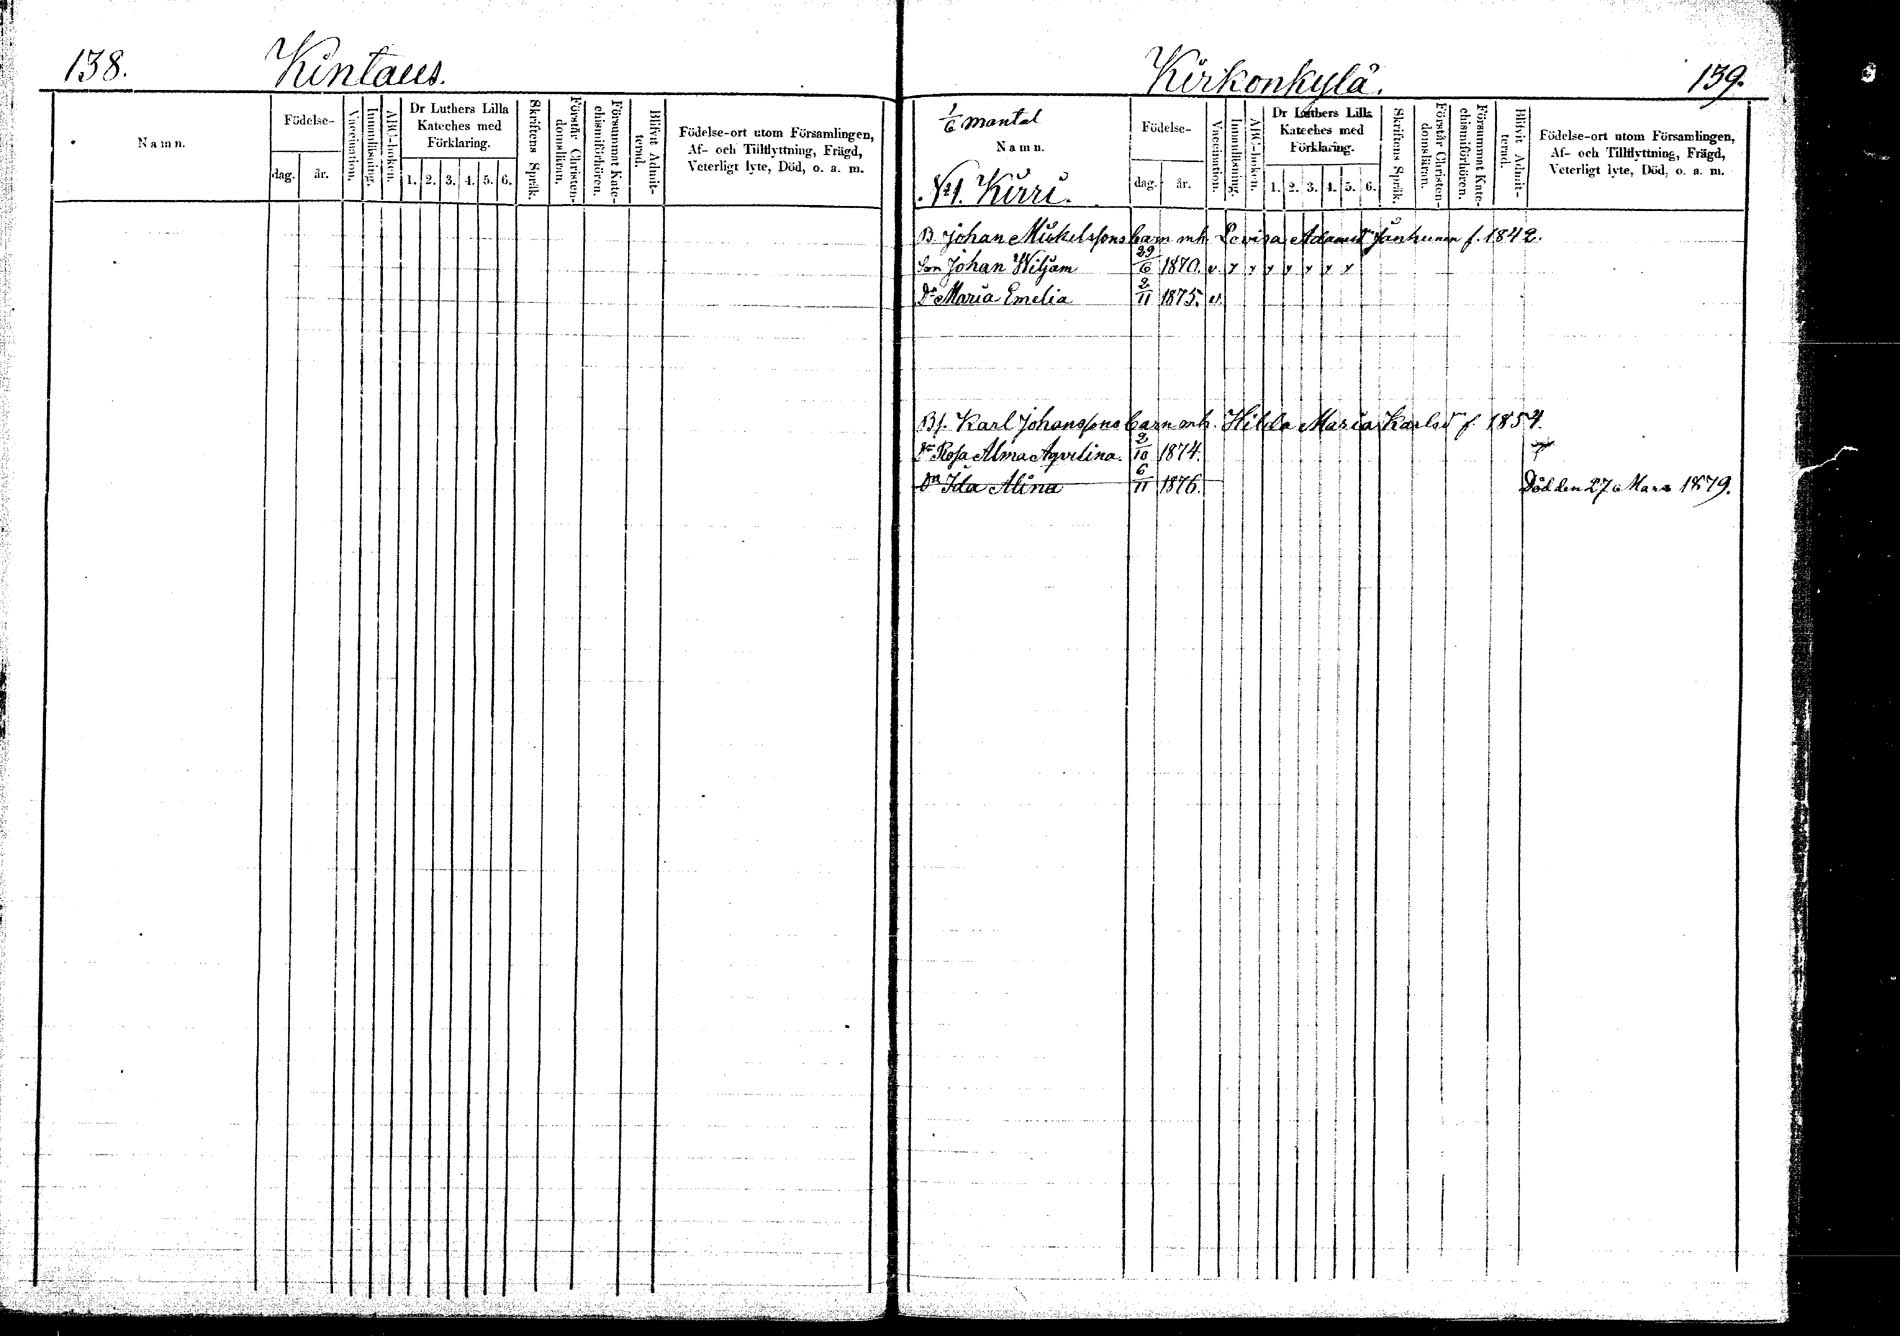 138. Kintaus.
Namn.
Födelse-
dag. år.
Vaccination.
Innanläsning.
ABC-boken.
Dr Luthers Lilla
Kateches med
Förklaring.
1. 2. 3. 4. 5. 6.
Skriftens Språk.
Förstår Christen-
domsläran.
Försummat Kate-
chismiförhören.
Blifvit Admit-
terad.
Födelse-ort utom Församlingen,
Af- och Tillflyttning, Frägd,
Veterligt lyte, Död, o. a. m.
Kirkonkylä. 139.
1/6 mantal
Namn.
№ 1. Kirri.
Födelse-
dag. år.
Vaccination.
Innanläsning.
ABC-boken.
Dr Luthers Lilla
Kateches med
Förklaring.
1. 2. 3. 4. 5. 6.
Skriftens Språk.
Förstår Christen-
domsläran.
Försummat Kate-
chismiförhören.
Blifvit Admit-
terad.
Födelse-ort utom Församlingen,
Af- och Tillflyttning, Frägd,
Veterligt lyte, Död, o. a. m.
B. Johan Mickelssons barn mh. Lovisa Adamsdr Janhunen f. 1842.
Son Johan Wiljam 29/6 1870. v.
Dr Maria Emelia 2/11 1875. v.
Bf. Karl Johanssons barn mh. Hilda Maria Karlsdr f. 1854.
Dr Rosa Alma Aqvilina. 2/10 1874.
Dr Ida Alina 6/11 1876. Död den 27 Mars 1879.